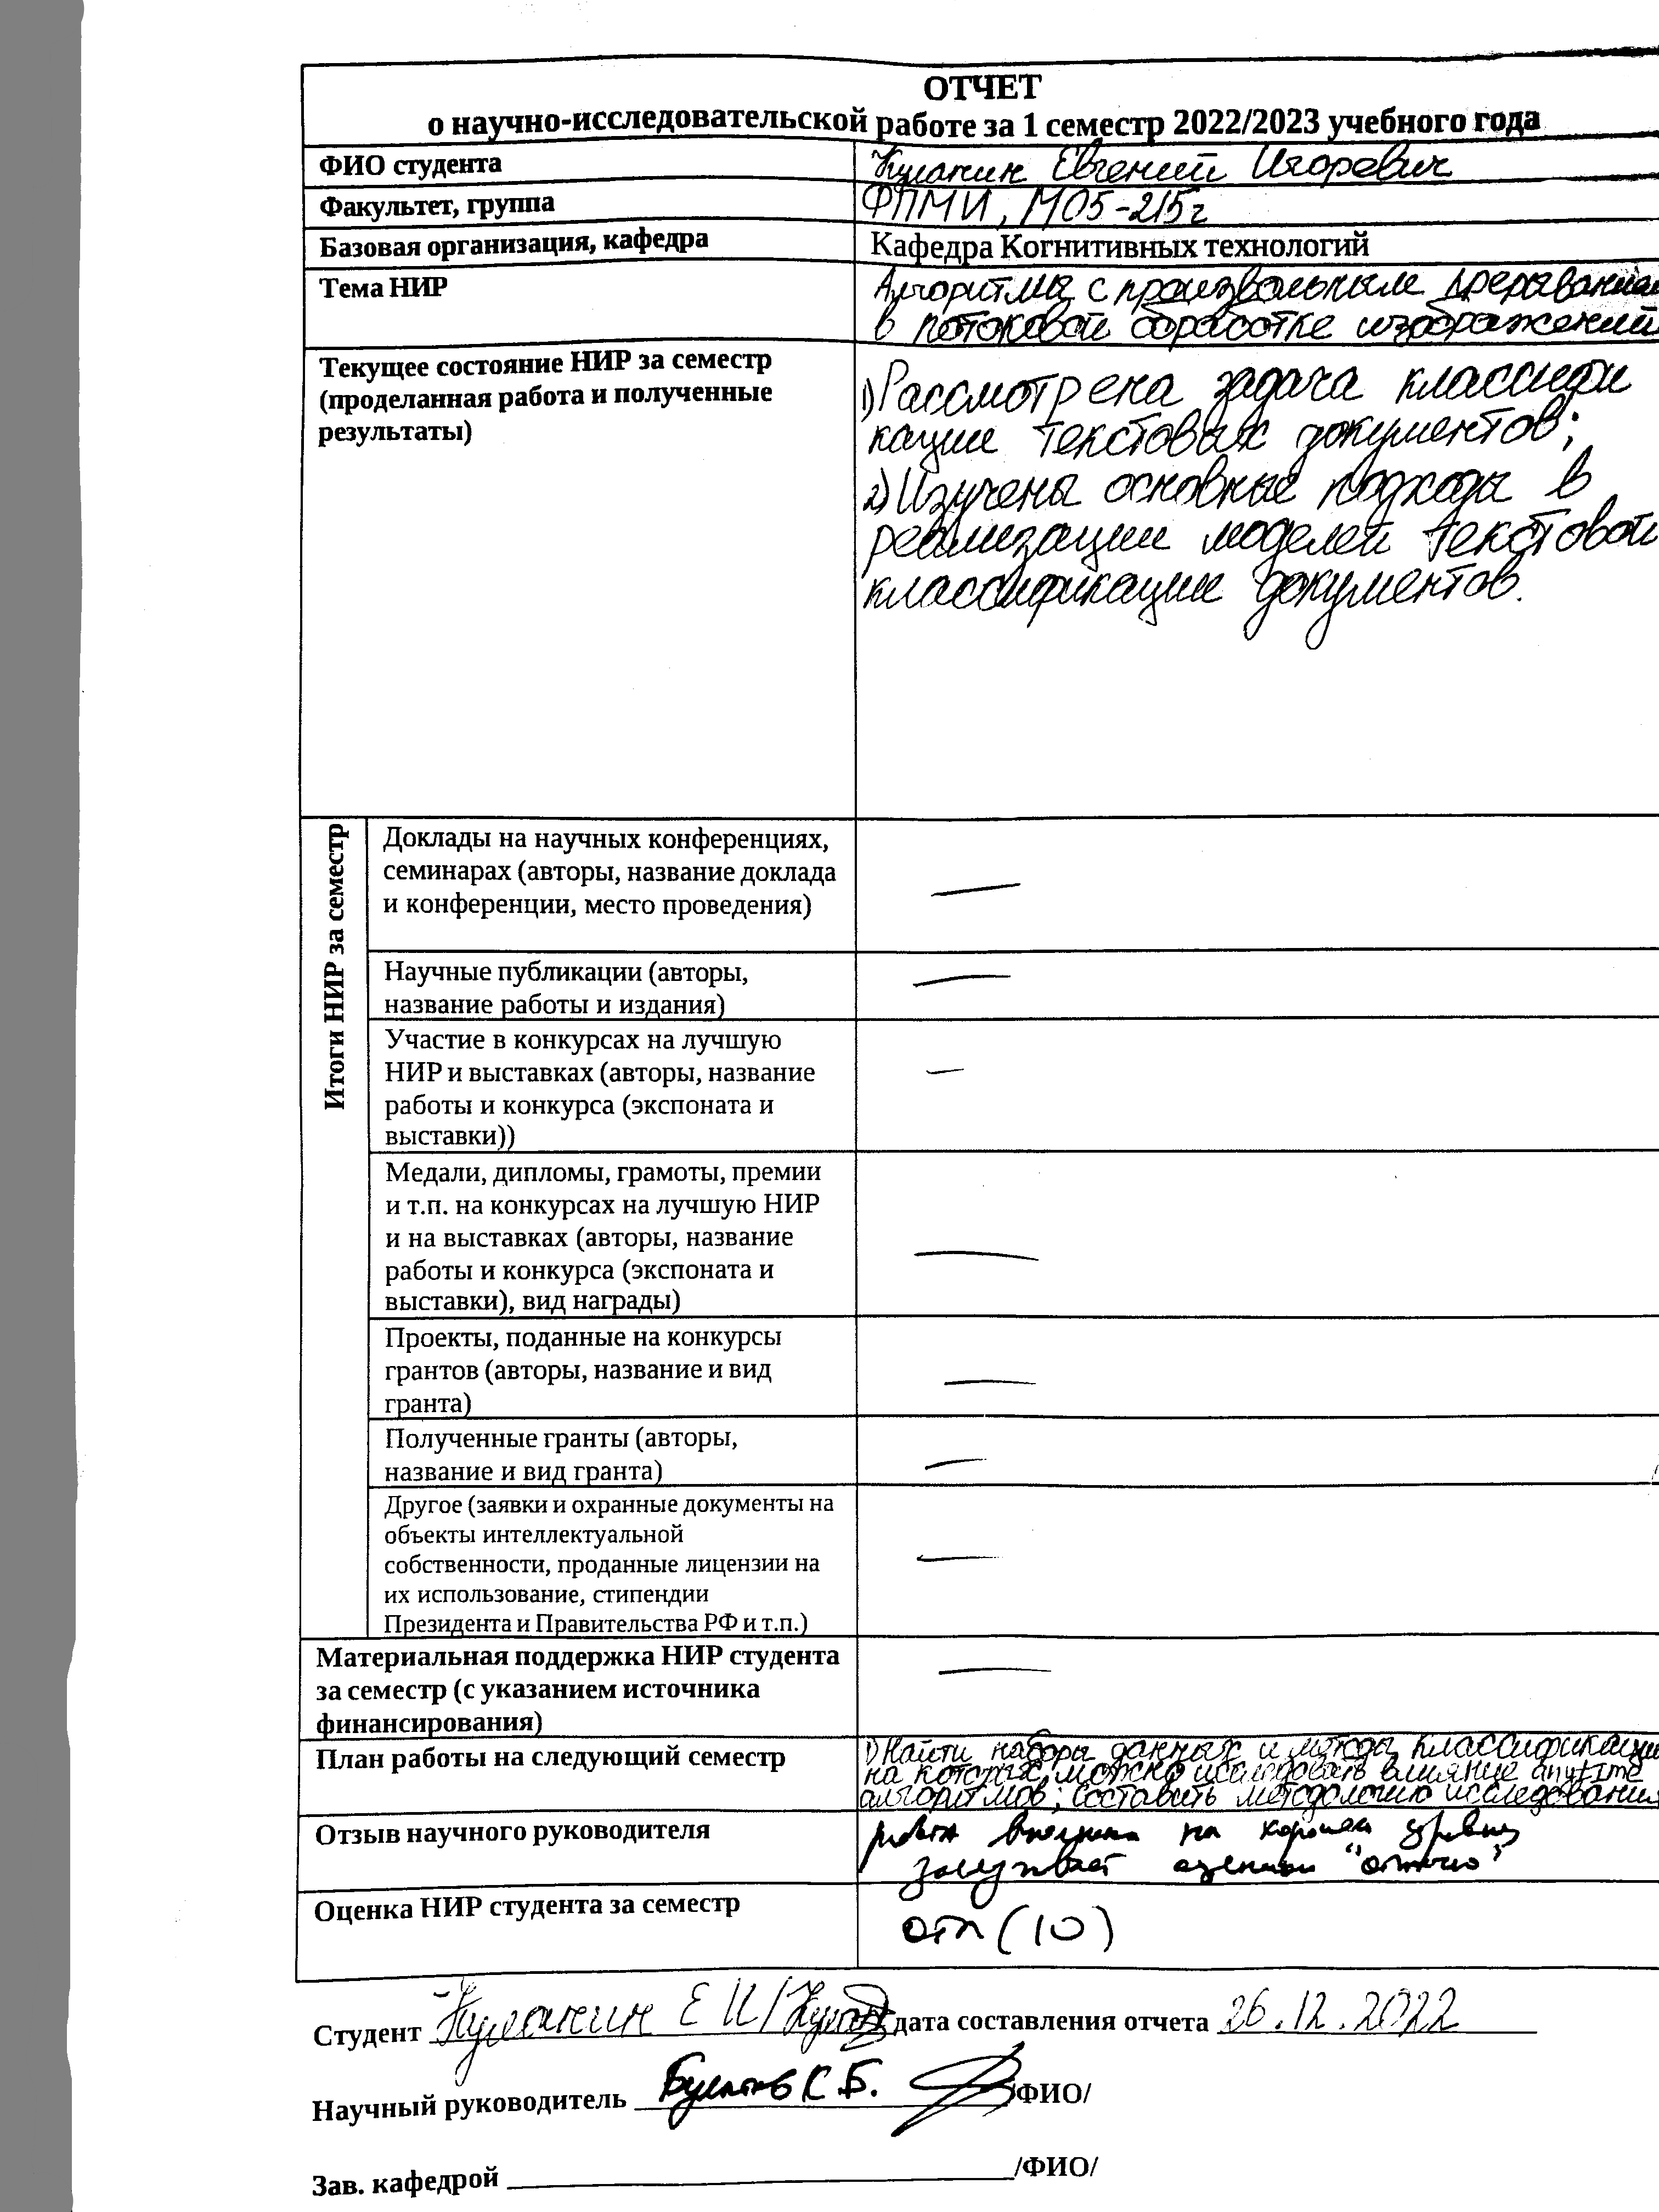 ОТЧЕТ
о научно-исследовательской работе за 1 семестр 2022/2023 учебного года
ФИО студента
Евгений Игоревич
Факультет, группа
ФПМИ, М05-215г
Базовая организация, кафедра
Кафедра Когнитивных технологий
Тема НИР
Алгоритмы с произвольным прерыванием
в потоковой обработке изображений
Текущее состояние НИР за семестр
(проделанная работа и полученные
результаты)
1) Рассмотрена задача классифи
кации текстовых документов;
2) Изучены основные подходы в
реализации моделей текстовой
классификации документов.
Итоги НИР за семестр
Доклады на научных конференциях,
семинарах (авторы, название доклада
и конференции, место проведения)
—
Научные публикации (авторы,
название работы и издания)
—
Участие в конкурсах на лучшую
НИР и выставках (авторы, название
работы и конкурса (экспоната и
выставки))
—
Медали, дипломы, грамоты, премии
и т.п. на конкурсах на лучшую НИР
и на выставках (авторы, название
работы и конкурса (экспоната и
выставки), вид награды)
—
Проекты, поданные на конкурсы
грантов (авторы, название и вид
гранта)
—
Полученные гранты (авторы,
название и вид гранта)
—
Другое (заявки и охранные документы на
объекты интеллектуальной
собственности, проданные лицензии на
их использование, стипендии
Президента и Правительства РФ и т.п.)
—
Материальная поддержка НИР студента
за семестр (с указанием источника
финансирования)
—
План работы на следующий семестр
1) Найти наборы данных и методы классификации
на которых можно исследовать влияние anytime
алгоритмов; составить методологию исследования
Отзыв научного руководителя
работа выполнена на хорошем уровне
заслуживает оценки "отлично"
Оценка НИР студента за семестр
отл (10)
Студент Е И / дата составления отчета 26.12.2022
Научный руководитель Булатов К.Б. /ФИО/
Зав. кафедрой /ФИО/